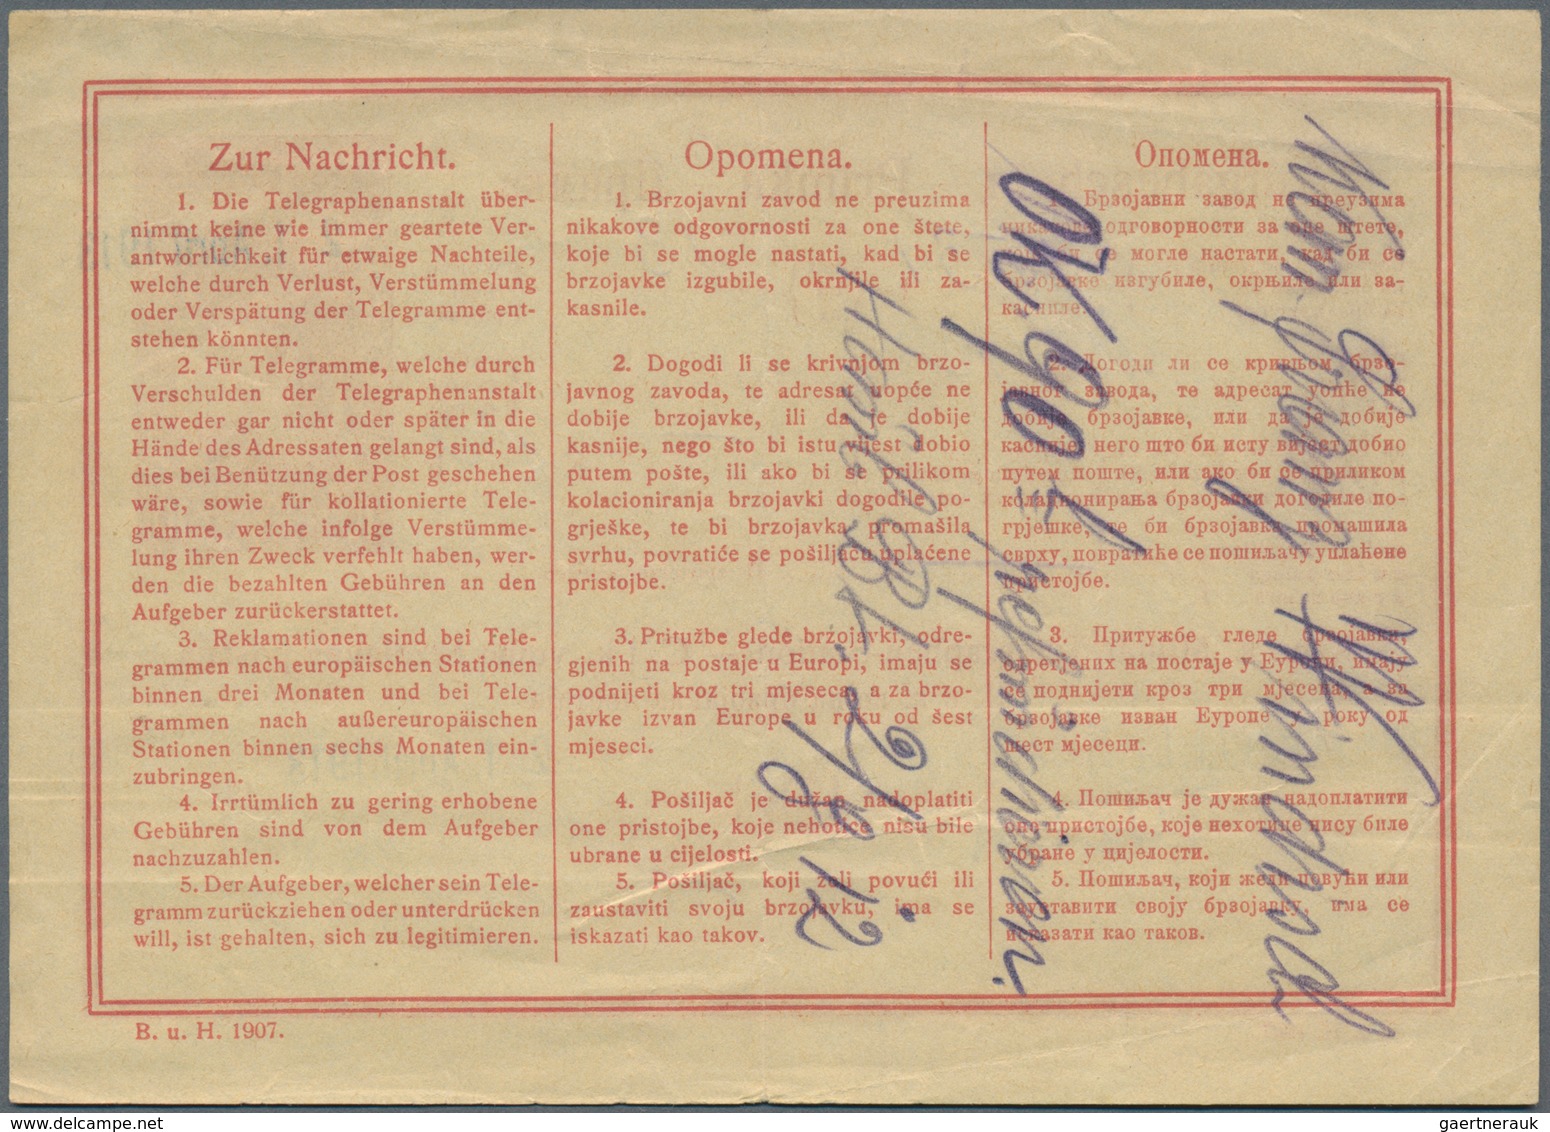 Zur Nachricht.
1. Die Telegraphenanstalt über-
nimmt keine wie immer geartete Ver-
antwortlichkeit für etwaige Nachteile,
welche durch Verlust, Verstümmelung
oder Verspätung der Telegramme ent-
stehen könnten.
2. Für Telegramme, welche durch
Verschulden der Telegraphenanstalt
entweder gar nicht oder später in die
Hände des Adressaten gelangt sind, als
dies bei Benützung der Post geschehen
wäre, sowie für kollationierte Tele-
gramme, welche infolge Verstümme-
lung ihren Zweck verfehlt haben, wer-
den die bezahlten Gebühren an den
Aufgeber zurückerstattet.
3. Reklamationen sind bei Tele-
grammen nach europäischen Stationen
binnen drei Monaten und bei Tele-
grammen nach außereuropäischen
Stationen binnen sechs Monaten ein-
zubringen.
4. Irrtümlich zu gering erhobene
Gebühren sind von dem Aufgeber
nachzuzahlen.
5. Der Aufgeber, welcher sein Tele-
gramm zurückziehen oder unterdrücken
will, ist gehalten, sich zu legitimieren.
Opomena.
1. Brzojavni zavod ne preuzima
nikakove odgovornosti za one štete,
koje bi se mogle nastati, kad bi se
brzojavke izgubile, okrnjile ili za-
kasnile.
2. Dogodi li se krivnjom brzo-
javnog zavoda, te adresat uopće ne
dobije brzojavke, ili da je dobije
kasnije, nego što bi istu vijest dobio
putem pošte, ili ako bi se prilikom
kolacioniranja brzojavki dogodile po-
grješke, te bi brzojavka promašila
svrhu, povratiće se pošiljaču uplaćene
pristojbe.
3. Pritužbe glede brzojavki, odre-
gjenih na postaje u Europi, imaju se
podnijeti kroz tri mjeseca, a za brzo-
javke izvan Europe u roku od šest
mjeseci.
4. Pošiljač je dužan nadoplatiti
one pristojbe, koje nehotice nisu bile
ubrane u cijelosti.
5. Pošiljač, koji želi povući ili
zaustaviti svoju brzojavku, ima se
iskazati kao takov.
Опомена.
1. Брзојавни завод не преузима
никакове одговорности за оне штете,
које би се могле настати, кад би се
брзојавке изгубиле, окрњиле или за-
касниле.
2. Догоди ли се кривњом брзо-
јавног завода, те адресат уопће не
добије брзојавке, или да је добије
касније, него што би исту вијест добио
путем поште, или ако би се приликом
колационирања брзојавки догодиле по-
грјешке, те би брзојавка промашила
сврху, повратиће се пошиљачу уплаћене
пристојбе.
3. Притужбе гледе брзојавки,
одрегјених на постаје у Еуропи, имају
се поднијети кроз три мјесеца, а за
брзојавке изван Еуропе у року од
шест мјесеци.
4. Пошиљач је дужан надоплатити
оне пристојбе, које нехотице нису биле
убране у цијелости.
5. Пошиљач, који жели повући или
зауставити своју брзојавку, има се
исказати као таков.
B. u. H. 1907.
gaertnerauk